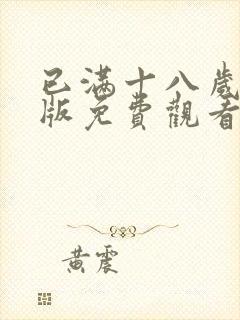 已满十八歲
版免費觀看
黄震